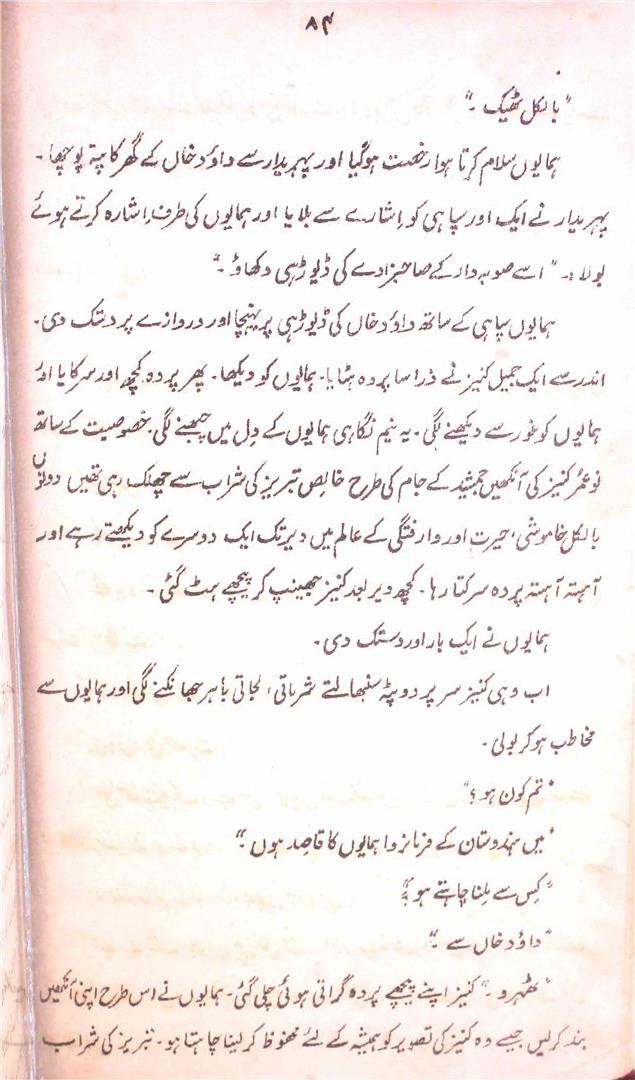 ۸۴
"بالکل ٹھیک ۔"
ہمایوں سلام کرتا ہوا رخصت ہوگیا اور پہریدار سے داؤد خاں کے گھر کا پتہ پوچھا ۔
پہریدار نے ایک اور سپاہی کو اِشارے سے بلایا اور ہمایوں کی طرف اِشارہ کرتے ہوئے
بولا :۔ "اسے صوبہ دار کے صاحبزادے کی ڈیوڑھی دکھاؤ ۔"
ہمایوں سپاہی کے ساتھ داؤد خاں کی ڈیوڑھی پر پہنچا اور دروازے پر دستک دی ۔
اندر سے ایک جمیل کنیز نے ذرا سا پردہ ہٹایا ۔ ہمایوں کو دیکھا ۔ پھر پردہ کچھ اور سرکایا اور
ہمایوں کو غور سے دیکھنے لگی ۔ یہ نیم نگاہی ہمایوں کے دِل میں چبھنے لگی ۔ خصوصیت کے ساتھ
نو عمر کنیز کی آنکھیں جمشید کے جام کی طرح خالص تبریز کی شراب سے چھلک رہی تھیں دونوں
بالکل خاموشی، حیرت اور وارفتگی کے عالم میں دیر تک ایک دوسرے کو دیکھتے رہے اور
آہستہ آہستہ پردہ سرکتا رہا ۔ کچھ دیر بعد کنیز جھینپ کر پیچھے ہٹ گئی ۔
ہمایوں نے ایک بار اور دستک دی ۔
اب وہی کنیز سر پر دوپٹہ سنبھالتے شرماتی، لجاتی باہر جھانکنے لگی اور ہمایوں سے
مخاطب ہو کر بولی ۔
"تم کون ہو؟"
"میں ہندوستان کے فرمانروا ہمایوں کا قاصِد ہوں ۔"
"کِس سے مِلنا چاہتے ہو؟"
"داؤد خاں سے ۔"
"ٹھہرو ۔" کنیز اپنے پیچھے پردہ گراتی ہوئی چلی گئی ۔ ہمایوں نے اس طرح اپنی آنکھیں
بند کر لیں جیسے وہ کنیز کی تصویر کو ہمیشہ کے لئے محفوظ کر لینا چاہتا ہو ۔ تبریز کی شراب